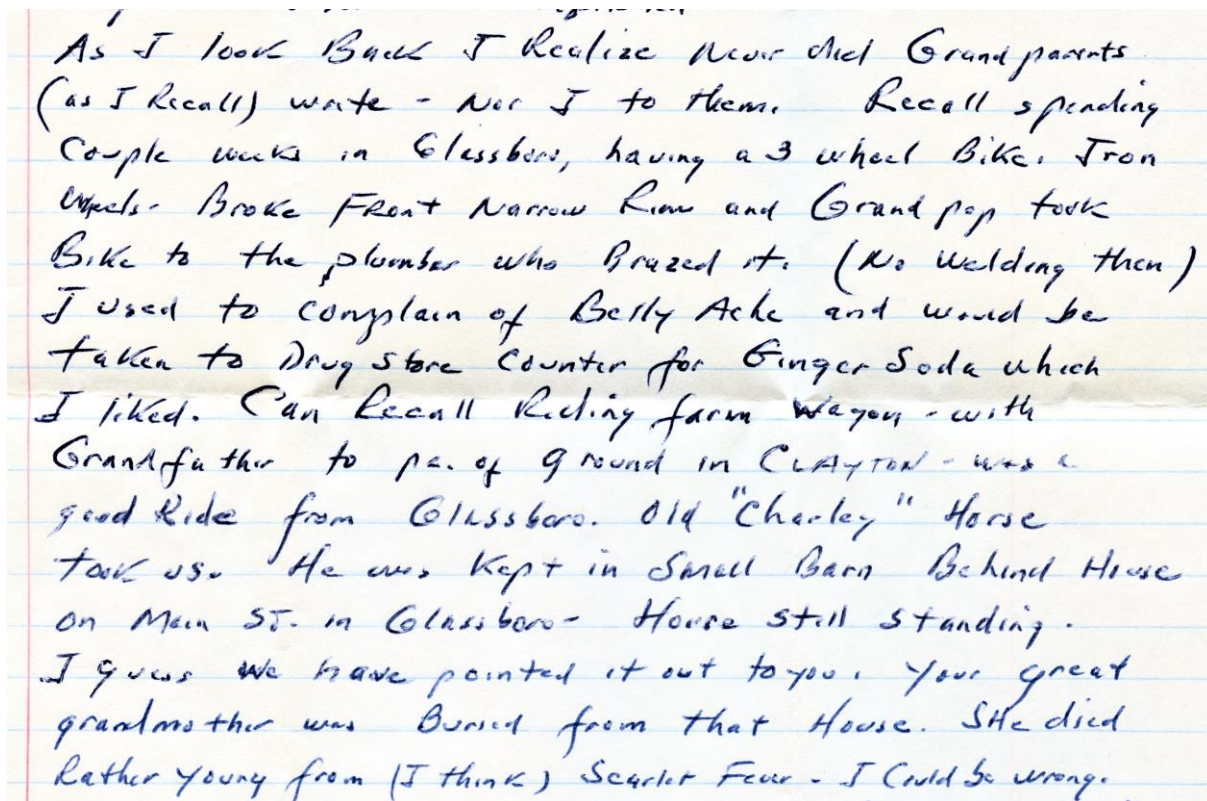 As I look Back I Realize Never did Grandparents
(as I Recall) write - Nor I to them. Recall spending
Couple weeks in Glassboro, having a 3 wheel Bike. Iron
Wheels - Broke Front Narrow Rim and Grand pop took
Bike to the plumber who Brazed it. (No Welding then)
I used to complain of Belly Ache and would be
taken to Drug Store Counter for Ginger Soda which
I liked. Can Recall Riding farm Wagon - with
Grandfather to pc. of ground in CLAYTON - was a
good Ride from Glassboro. Old "Charley" Horse
took us. He was Kept in Small Barn Behind House
on Main St. in Glassboro - House Still Standing.
I guess we have pointed it out to you. Your great
grandmother was Buried from that House. She died
Rather Young from (I think) Scarlet Fever - I Could be wrong.